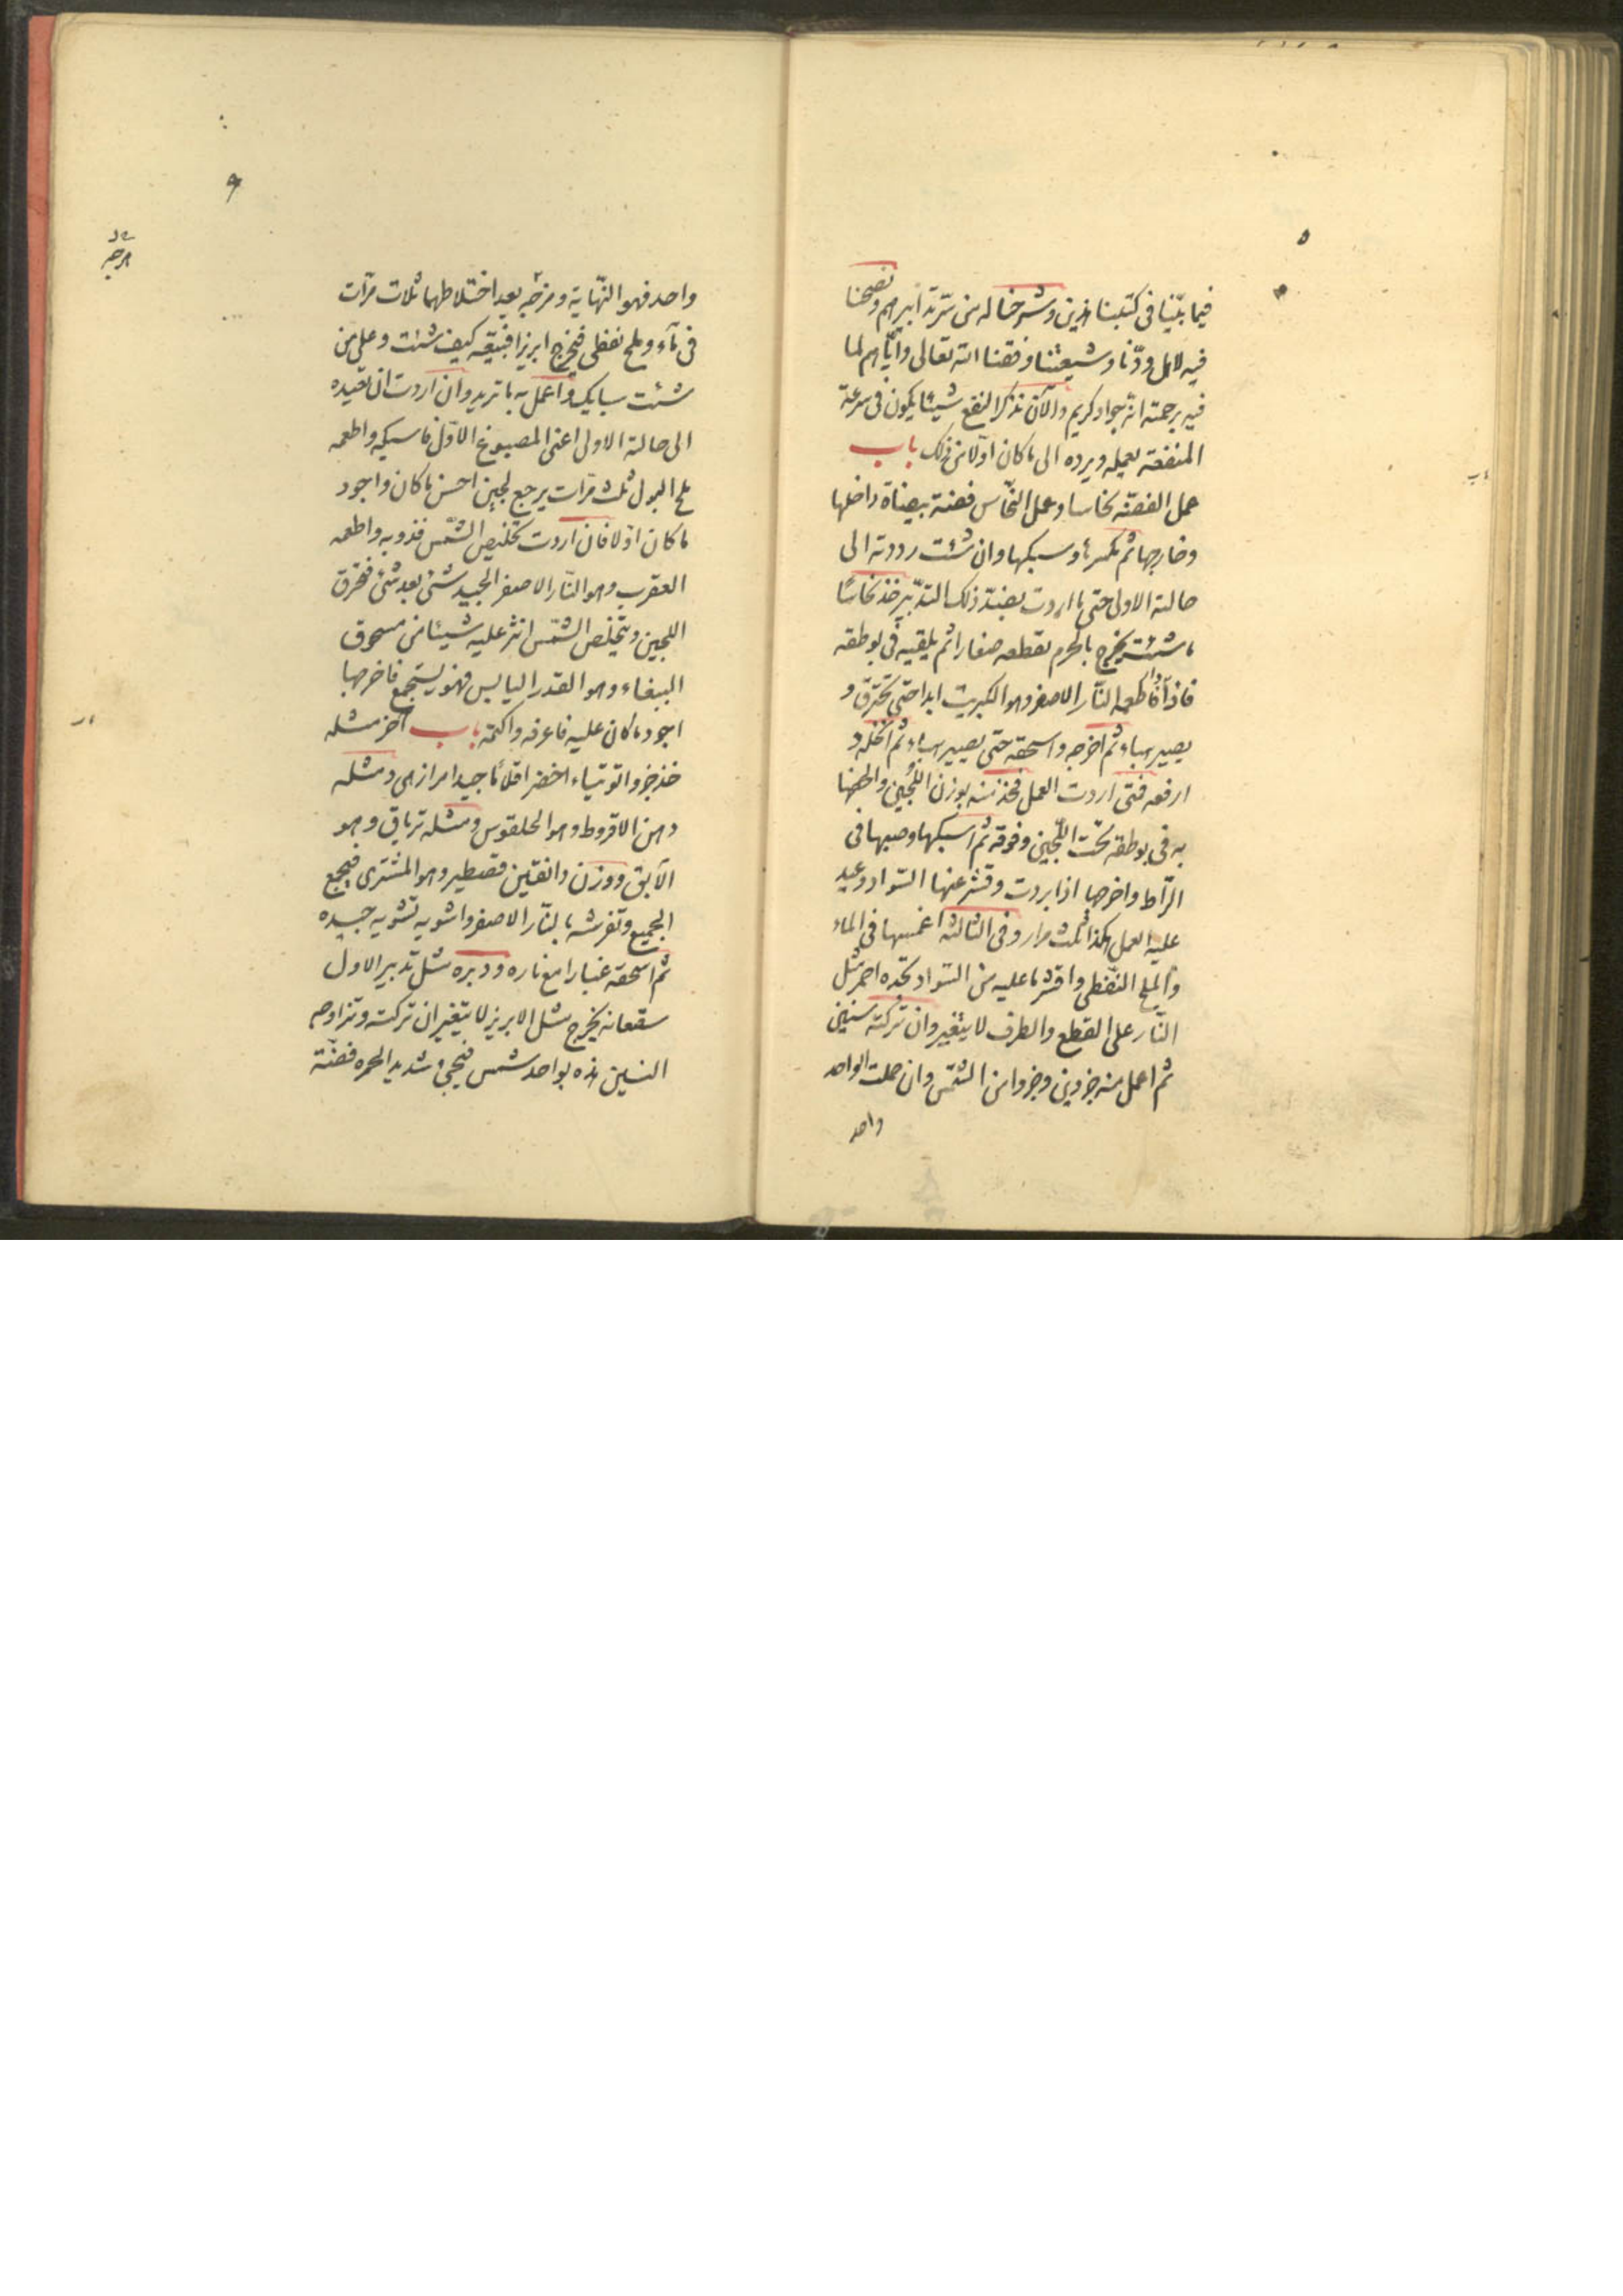 ٥
فيما بيّنا فى كتبنا هذين وشرحناله من سريّة ابرهم ونصحنا
فيه لاهل ودّنا وشيعتنا وفقنا الله تعالى وايّاهم لما
فيه برحمته انه جواد كريم والآن نذكر النفع شيئا يكون فى سرعة
المنفعة بعمله ويرده الى ما كان اولا من ذلك باب
عمل الفضة نحاسا وعمل النحّاس فضة بيضاة داخلها
وخارجها ثم تكسرها وسبكها وان شئت رددته الى
حالته الاولى حتى ما اردت بصنة ذلك التدبّير خذ نحاسًا
ما شئت يخرج بالجرم تقطعه صغارا ثم يلقيه فى بوطقه
فاذا ذاب فاطعمه النّار الاصفر وهو الكبريت ابدا حتى تحترق و
يصير هباء ثم اخرجه واسحقه حتى يصير هباء ثم انخله و
ارفعه فمتى اردت العمل فخذ منه بوزن اللّجين والحقها
به فى بوطقه تحت اللّجين وفوقه ثم اسبكها وصبها فى
الرّاط واخرجها اذا بردت وقشر عنها السّواد وعيد
عليه العمل هكذا ثلث مرار وفى الثالثة اغمسها فى الماء
والملح النّفطى واقشر ما عليه من السّواد تجده احمر مثل
النّار على القطع والطرف لا يتغيّر وان تركته سنين
ثم اعمل منه جزوين وجزوا من الشمّس وان جعلت الواحد
واحد
٩
واحد فهو النّهاية ومزجه بعد اختلاطهما ثلاث مرّات
فى ماء وملح نفطى فيخرج ابريزا فبيعه كيف شئت وعلى من
شئت سبايك واعمل به ما تريد وان اردت ان تعيده
الى حالته الاولى اعنى المصبوغ الاوّل فاسبكه واطعمه
ملح البول ثلث مرّات يرجع لجين احسن ما كان واجود
ما كان اوّلا فان اردت تخليص الشمّس فذوبه واطعمه
العقرب وهو النّار الاصفر الجيد شئ بعد شئ فتحرق
اللجين ويتخلّص الشمّس انثر عليه شيئا من مسحوق
البيضاء وهو القدر اليابس فهو يستجمع فاخرجها
اجود ما كان عليه فاعرفه واكتمه باب اخر مثله
خذ جزوا توتياء اخضر اقلاما جيدا مرازبى ومثله
دهن الاقروط وهو الحلقوس ومثله ترياق وهو
الآبق ووزن دانقين قصطير وهو المشترى فيجمع
الجميع وتفرشه بالنّار الاصفر واشويه تشويه جيده
ثم اسحقه غبارا مع ناره ودبره مثل تدبير الاول
سقعانه يخرج مثل الابريز لا يتغير ان تركته وتزاوجه
السنين هذه بواحد شمس فيجى وشديد الحمره فضّة